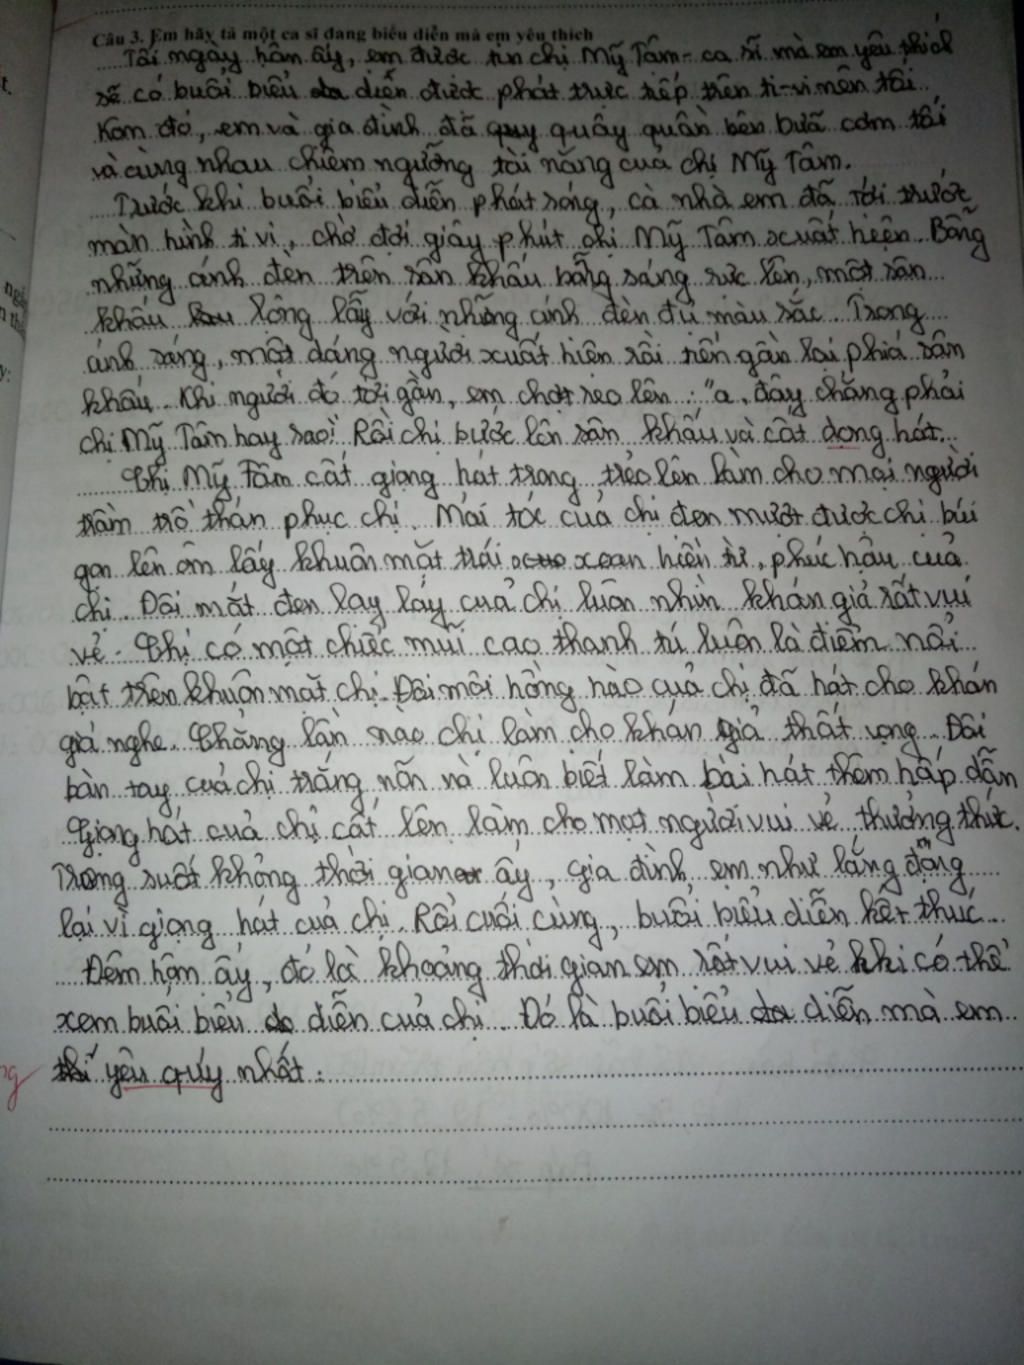 Câu 3. Em hãy tả một ca sĩ đang biểu diễn mà em yêu thích
Tối ngày hôm ấy, em được tin chị Mỹ Tâm - ca sĩ mà em yêu thích
sẽ có buổi biểu diễn được phát trực tiếp trên ti-vi nên tối
hôm đó, em và gia đình đã quây quần bên bữa cơm tối
và cùng nhau chiêm ngưỡng tài năng của chị Mỹ Tâm.
Trước khi buổi biểu diễn phát sóng, cả nhà em đã tới trước
màn hình ti vi, chờ đợi giây phút chị Mỹ Tâm xuất hiện. Bỗng
những ánh đèn trên sân khấu bỗng sáng rực lên, một sân
khấu lộng lẫy với những ánh đèn đủ màu sắc. Trong
ánh sáng, một dáng người xuất hiện rồi tiến gần lại phía sân
khấu. Khi người đó tới gần, em chợt reo lên: "a, đây chẳng phải
chị Mỹ Tâm hay sao! Rồi chị bước lên sân khấu và cất dọng hát.
Chị Mỹ Tâm cất giọng hát trong trẻo lên làm cho mọi người
trầm trồ thán phục chị. Mái tóc của chị đen mượt được chị búi
gọn lên ôm lấy khuôn mặt trái xoan hiền từ, phúc hậu của
chị. Đôi mắt đen lay láy của chị luôn nhìn khán giả rất vui
vẻ. Chị có một chiếc mũi cao thanh tú luôn là điểm nổi
bật trên khuôn mặt chị. Đôi môi hồng hào của chị đã hát cho khán
giả nghe. Chẳng lần nào chị làm cho khán giả thất vọng. Đôi
bàn tay của chị trắng nõn và luôn biết làm bài hát thêm hấp dẫn
Giọng hát của chị cất lên làm cho mọi người vui vẻ thưởng thức.
Trong suốt khỏng thời gian ấy, gia đình em như lắng đọng
lại vì giọng hát của chị. Rồi cuối cùng, buổi biểu diễn kết thúc
Đêm hôm ấy, đó là khoảng thời gian em rất vui vẻ khi có thể
xem buổi biểu diễn của chị. Đó là buổi biểu diễn mà em
yêu quý nhất.